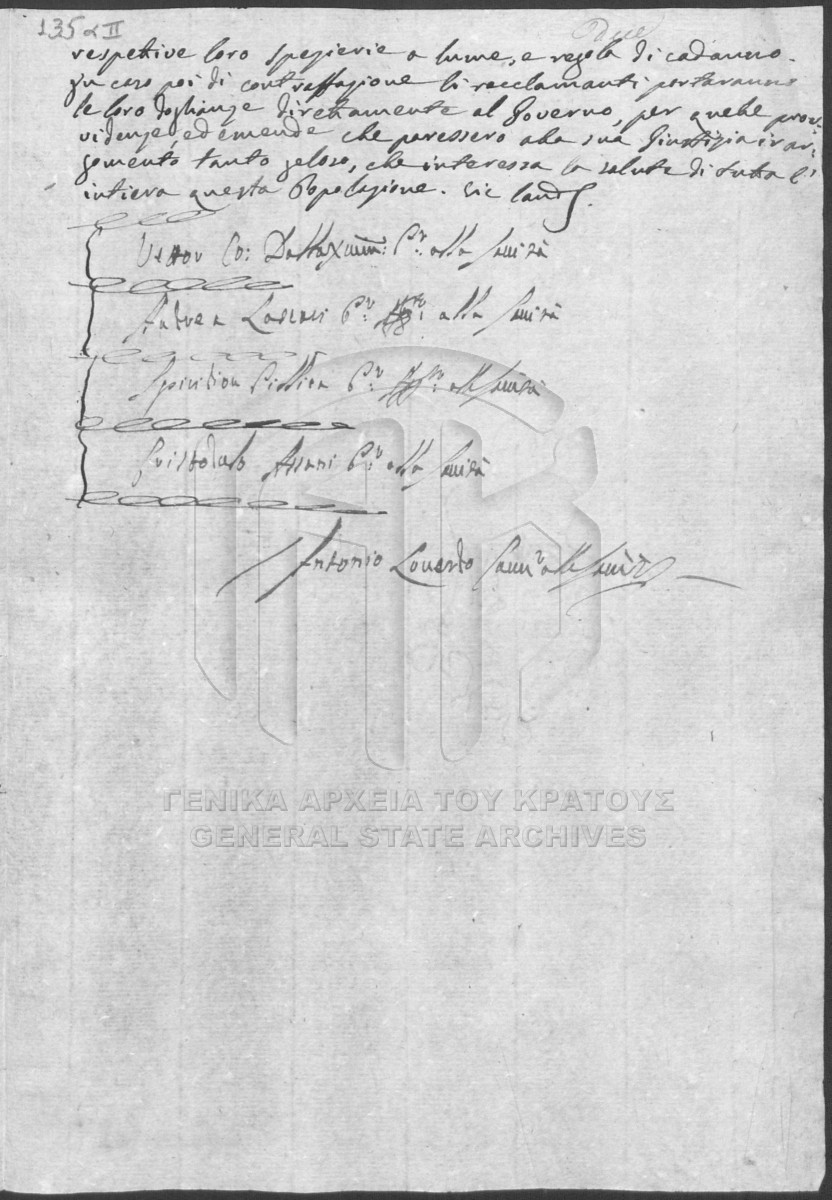 135 α II
respettive loro spezierie a lume, e regola di cadauno.
In caso poi di contraffazione li recclamanti porteranno
le loro doglianze direttamente al Governo, per quelle prov-
videnze, ed emende che paressero alla sua Giustizia in ar-
gomento tanto geloso, che interessa la salute di tutta l'
intiera questa Popolazione. Sic
Vettor Co: Pr: alla Sanità
Andrea Pr: alla Sanità
Spiridion Pr: alla Sanità
Cristodulo Assani Pr: alla Sanità
Antonio Loverdo alla Sanità
ΓΕΝΙΚΑ ΑΡΧΕΙΑ ΤΟΥ ΚΡΑΤΟΥΣ
GENERAL STATE ARCHIVES